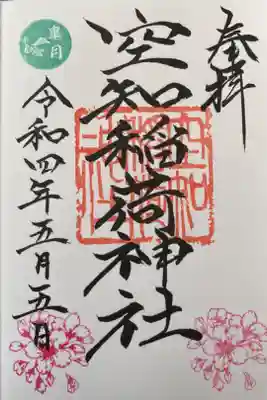 奉拝
空知稲荷神社
皐月
令和四年五月五日